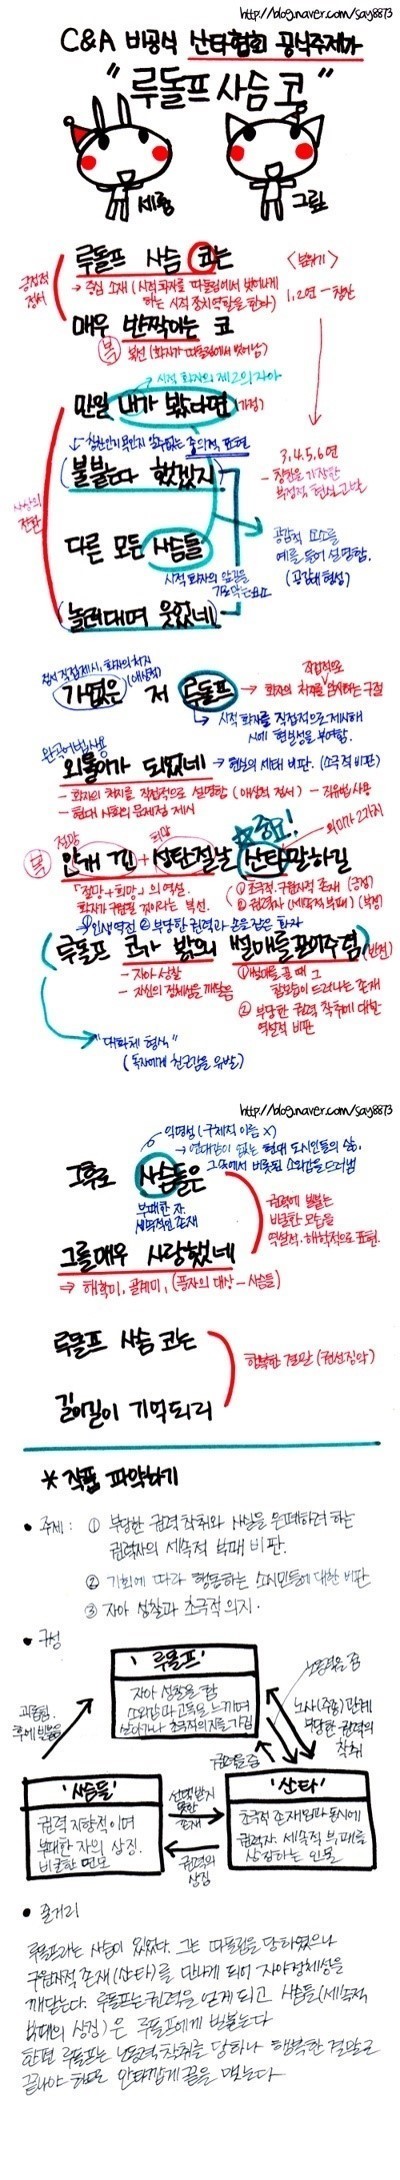 http://blog.naver.com/say8873
C&A 비공식 산타협회 공식주제가
"루돌프 사슴 코"
세룡
그림
긍정적 정서
루돌프 사슴 코는
→ 중심 소재 (시적 화자를 따돌림에서 벗어나게
하는 시적 장치 역할을 한다)
매우 반짝이는 코
복 복선 (화자가 따돌림에서 벗어남)
<분위기>
1, 2연 - 칭찬
3, 4, 5, 6연
- 칭찬을 가장한
부정적 현실 고발
시상의 전환
시적 화자의 제2의 자아
만일 내가 봤다면 (가정)
↳ 칭찬인지 욕인지 알 수 없는 중의적 표현
(불붙는다 했겠지)
다른 모든 사슴들
시적 화자의 앞길을
가로막는 요소
(놀려대며 웃었네)
공감적 요소를
예를 들어 설명함.
(공감대 형성)
정서 직접 제시, 화자의 처지
(애상적)
가엾은 저 루돌프
직접적으로
→ 화자의 처지를 암시하는 구절
↳ 시적 화자를 직접적으로 제시해
시에 현실성을 부여함.
완곡어법 사용
외톨이가 되었네 → 현실의 세태 비판. (소극적 비판)
- 화자의 처지를 직접적으로 설명함 (애상적 정서) - 직유법 사용
- 현대 사회의 문제점 제시
절망
희망
☆중요!
의미가 2가지
복 안개 낀 + 성탄절 날 산타 말하길
「절망 + 희망」의 역설.
화자가 구원될 것이라는 복선.
① 초극적·구원자적 존재 (긍정)
② 권력자 (세속적 부패) (부정)
① 인생역전 ② 부당한 권력과 손을 잡은 화자
(루돌프 코가 밝으니 썰매를 끌어주렴) (반전)
- 자아 성찰
- 자신의 정체성을 깨달음
① 썰매를 끌 때 그
참모습이 드러나는 존재
② 부당한 권력 착취에 대한
역설적 비판
"대화체 형식"
(독자에게 친근감을 유발)
http://blog.naver.com/say8873
익명성 (구체적 이름 X)
→ 연대감이 없는 현대 도시인들의 삶,
그 속에서 비롯된 소외감을 드러냄
그후로 사슴들은
부패한 자.
세속적인 존재
그를 매우 사랑했네
→ 해학미, 골계미, (풍자의 대상 - 사슴들)
권력에 빌붙는
비굴한 모습을
역설적·해학적으로 표현.
루돌프 사슴 코는
길이길이 기억되리
행복한 결말 (권선징악)
* 작품 파악하기
• 주제 : ① 부당한 권력 착취와 사실을 은폐하려 하는
권력자의 세속적 부패 비판.
② 기회에 따라 행동하는 소시민들에 대한 비판
③ 자아 성찰과 초극적 의지.
• 구성
'루돌프'
자아 성찰을 함
소외감과 고독을 느끼며
살아가나 초극적 의지를 가짐
괴롭힘.
후에 빌붙음
노동력을 줌
노사(주종) 관계
부당한 권력의
착취
권력을 줌
'사슴들'
권력 지향적이며
부패한 자의 상징.
비굴한 면모
선택받지
못한
존재
권력의
상징
'산타'
초극적 존재임과 동시에
권력자. 세속적 부패를
상징하는 인물
• 줄거리
루돌프라는 사슴이 있었다. 그는 따돌림을 당하였으나
구원자적 존재(산타)를 만나게 되어 자아정체성을
깨닫는다. 루돌프는 권력을 얻게 되고 사슴들(세속적
부패의 상징)은 루돌프에게 빌붙는다
한편 루돌프는 노동력 착취를 당하나 행복한 결말로
끝나야 하므로 안타깝게 끝을 맺는다